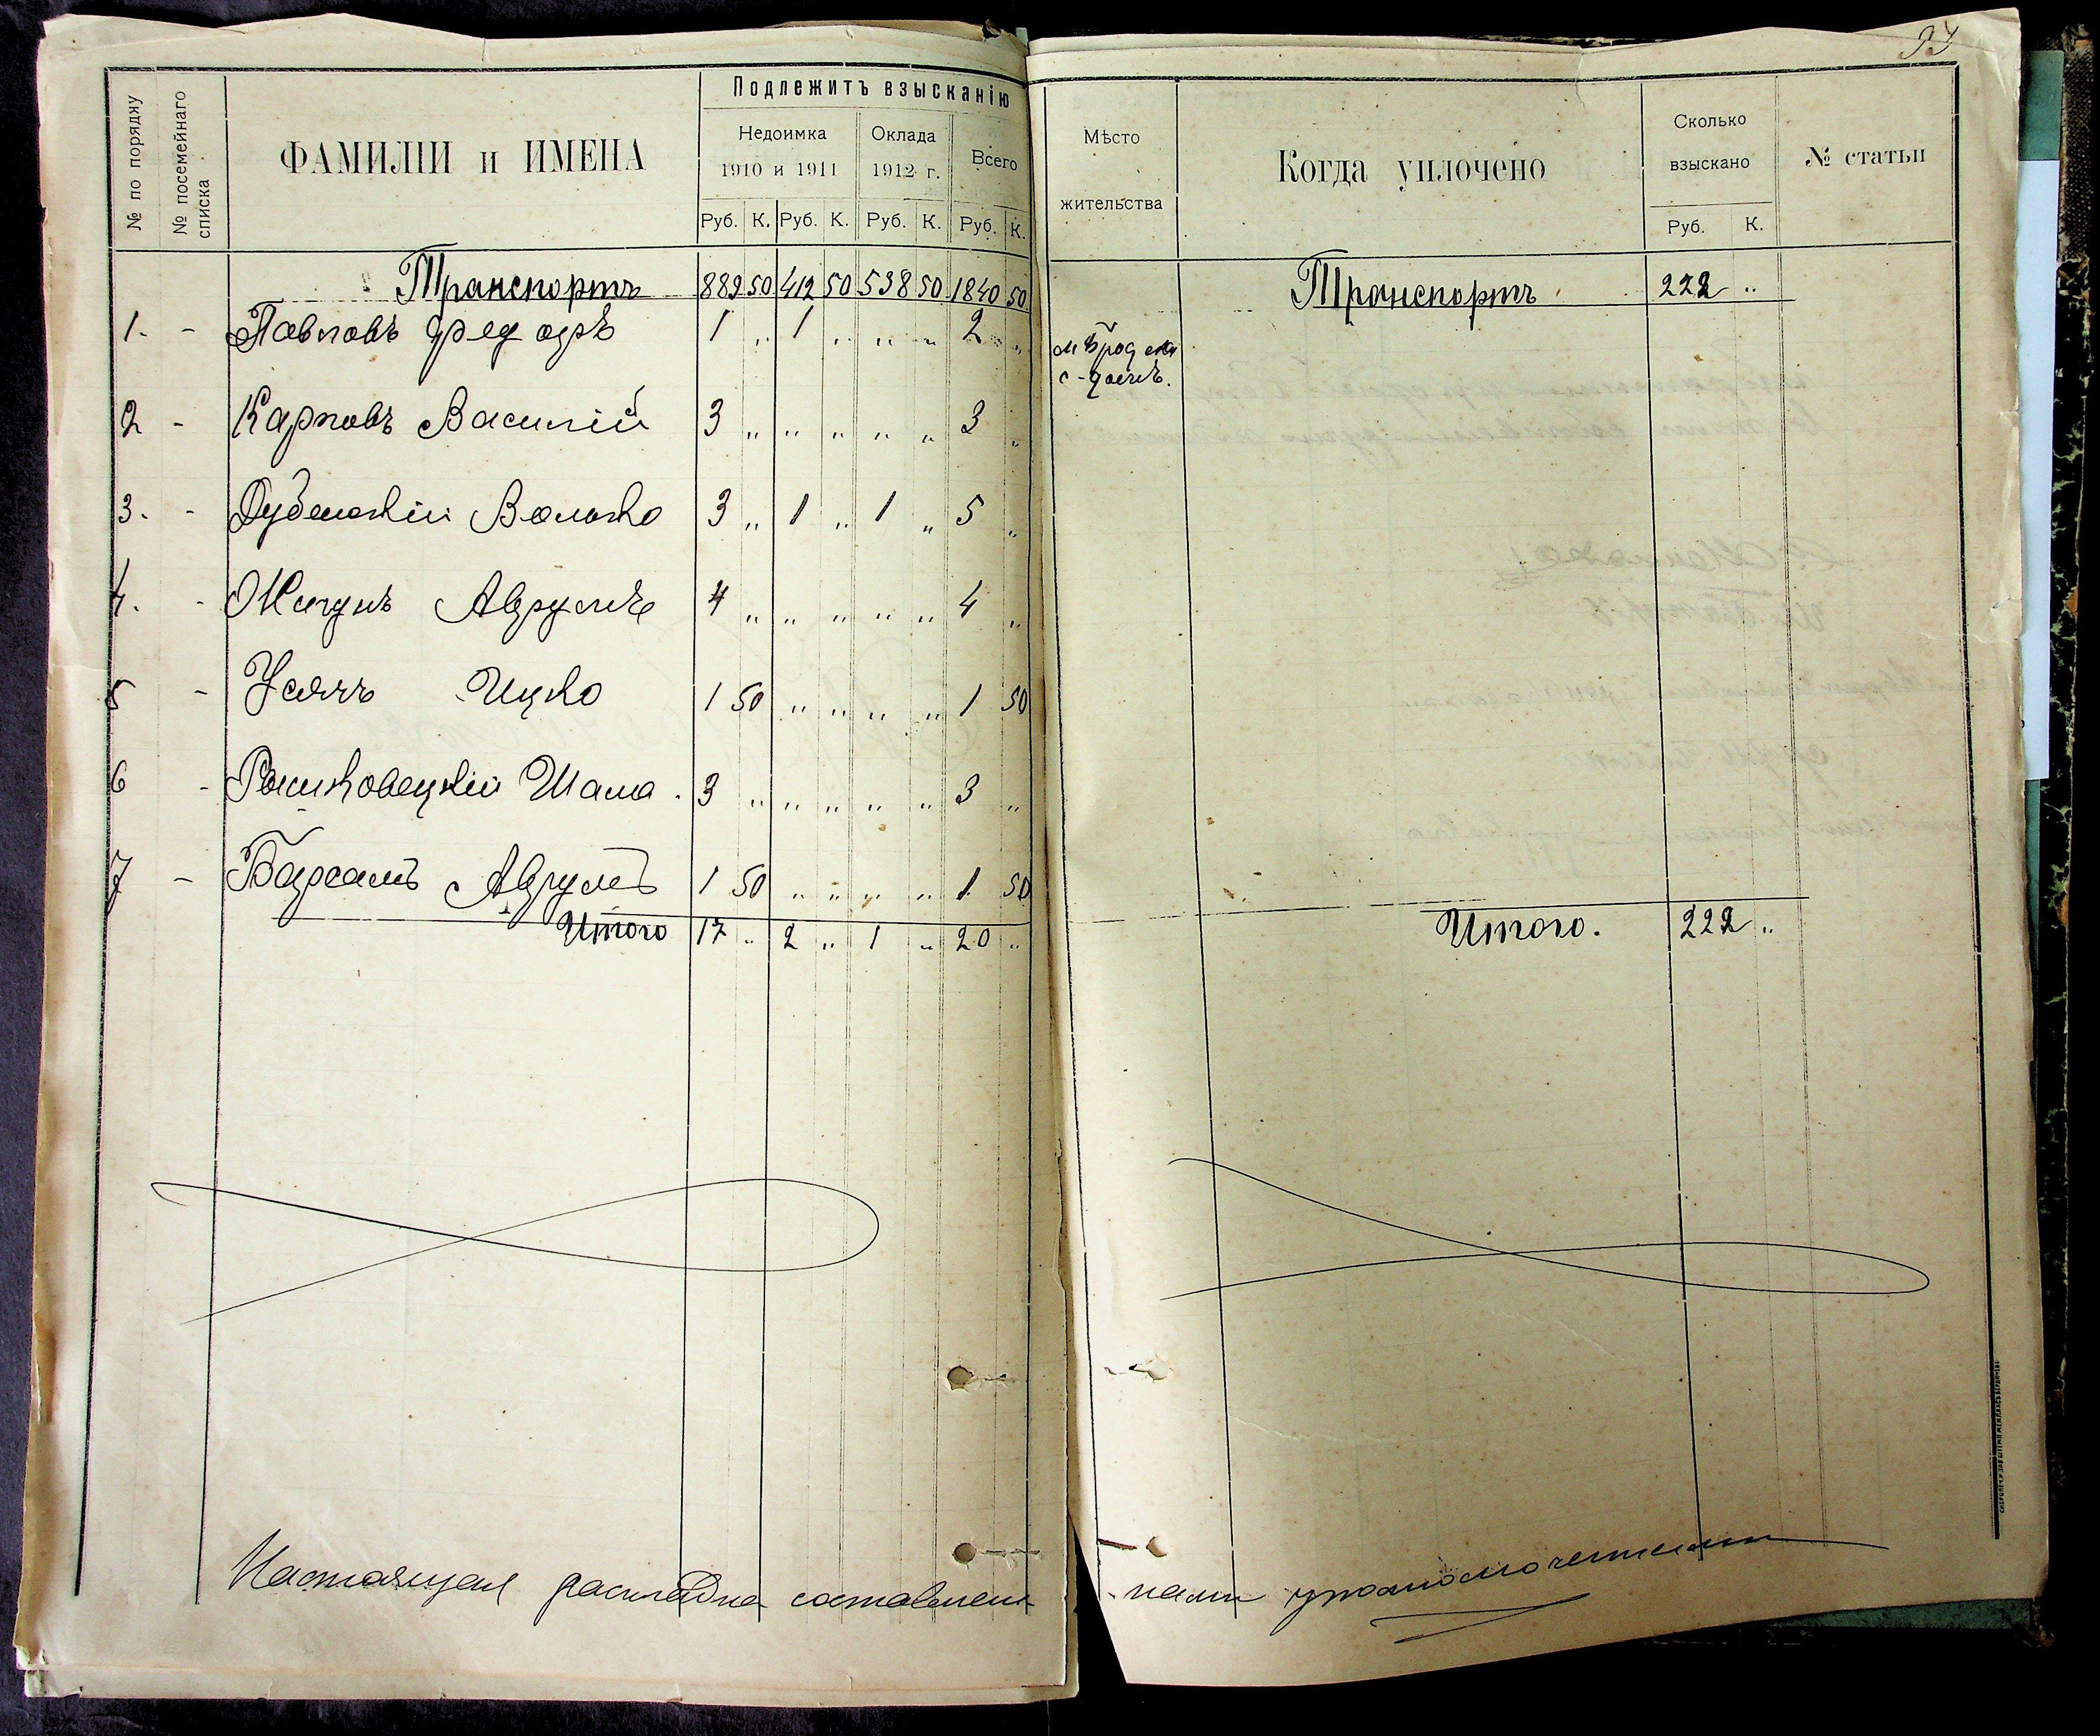 Подлежитъ взысканію
№ по порядку
№ посемейнаго списка
ФАМИЛІИ и ИМЕНА
Недоимка
1910 и 1911
Оклада
1912 г.
Всего
Руб. К. Руб. К. Руб. К. Руб. К.
Транспортъ 889 50 412 50 538 50 1840 50
1. - Павловъ Ѳедоръ 1 „ 1 „ „ „ 2 „
2 - Карповъ Василій 3 „ „ „ „ „ 3 „
3. - Дубенскій Волько 3 „ 1 „ 1 „ 5 „
4. - Жигунъ Аврумъ 4 „ „ „ „ „ 4 „
5 - Ицко 1 50 „ „ „ „ 1 50
6 - Рашковецкій Шама. 3 „ „ „ „ „ 3 „
7 - Аврумъ 1 50 „ „ „ „ 1 50
Итого 17 „ 2 „ 1 „ 20 „
Настоящая раскладка составлена
Мѣсто
жительства
Когда уплочено
Сколько
взыскано
Руб. К.
№ статьи
Транспортъ 222 „
Итого. 222 „
нами уполномоченными